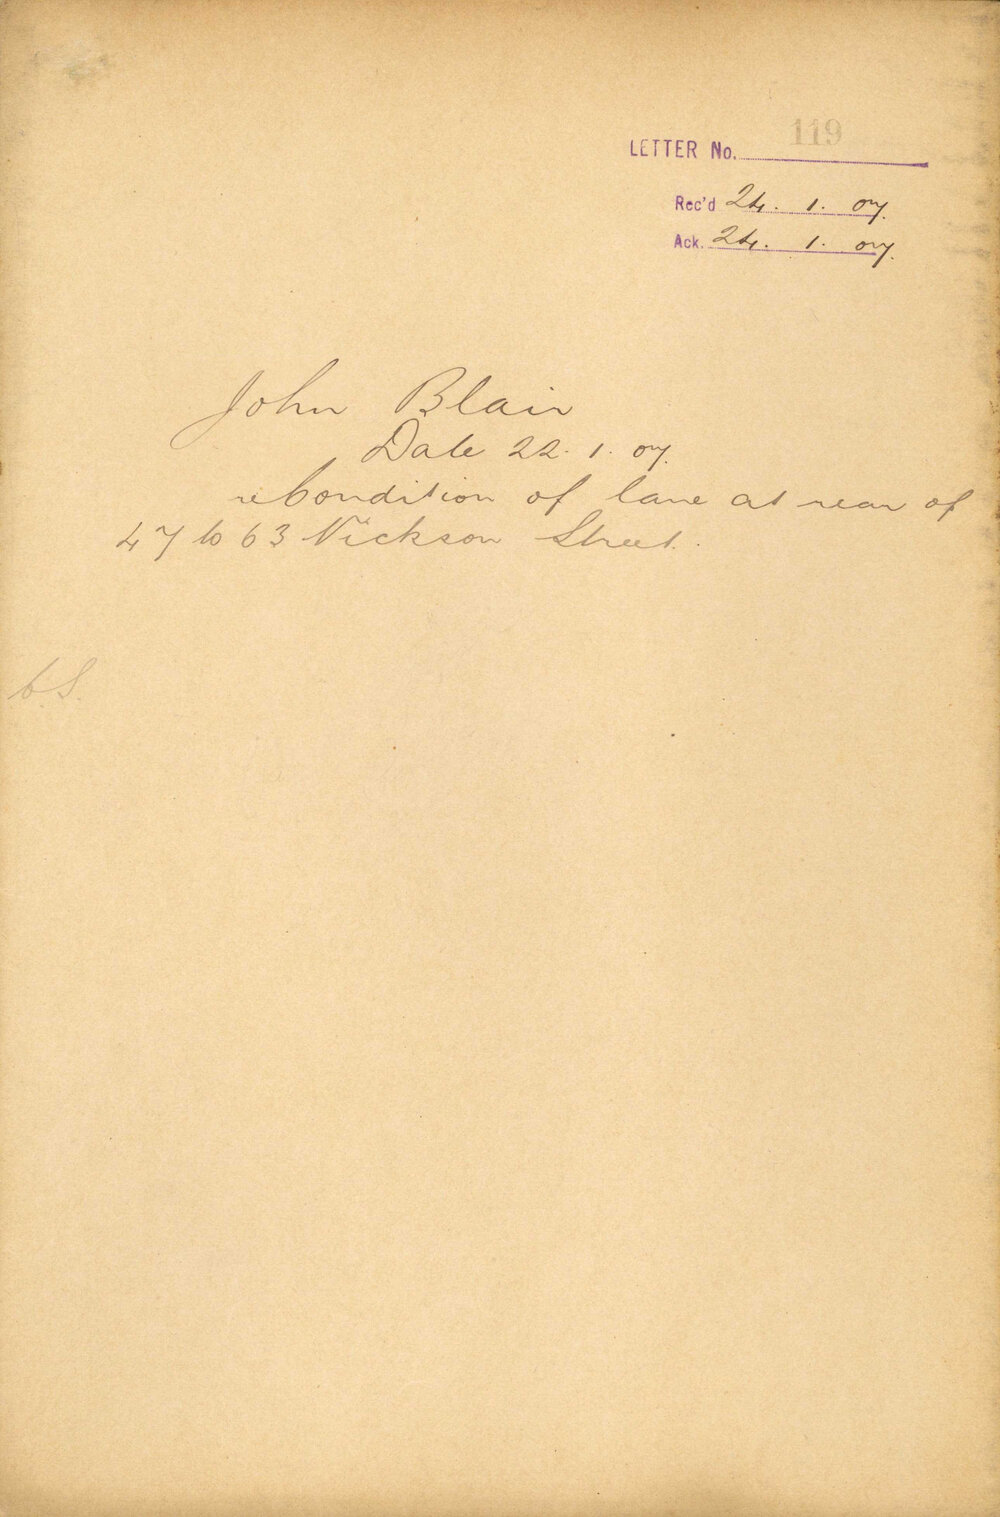 119
LETTER No.
Rec'd 24. 1. 07.
Ack. 24. 1. 07.
John Blair
Date 22. 1. 07.
re Condition of lane at rear of
47 to 63 Vickson Street.
C.S.